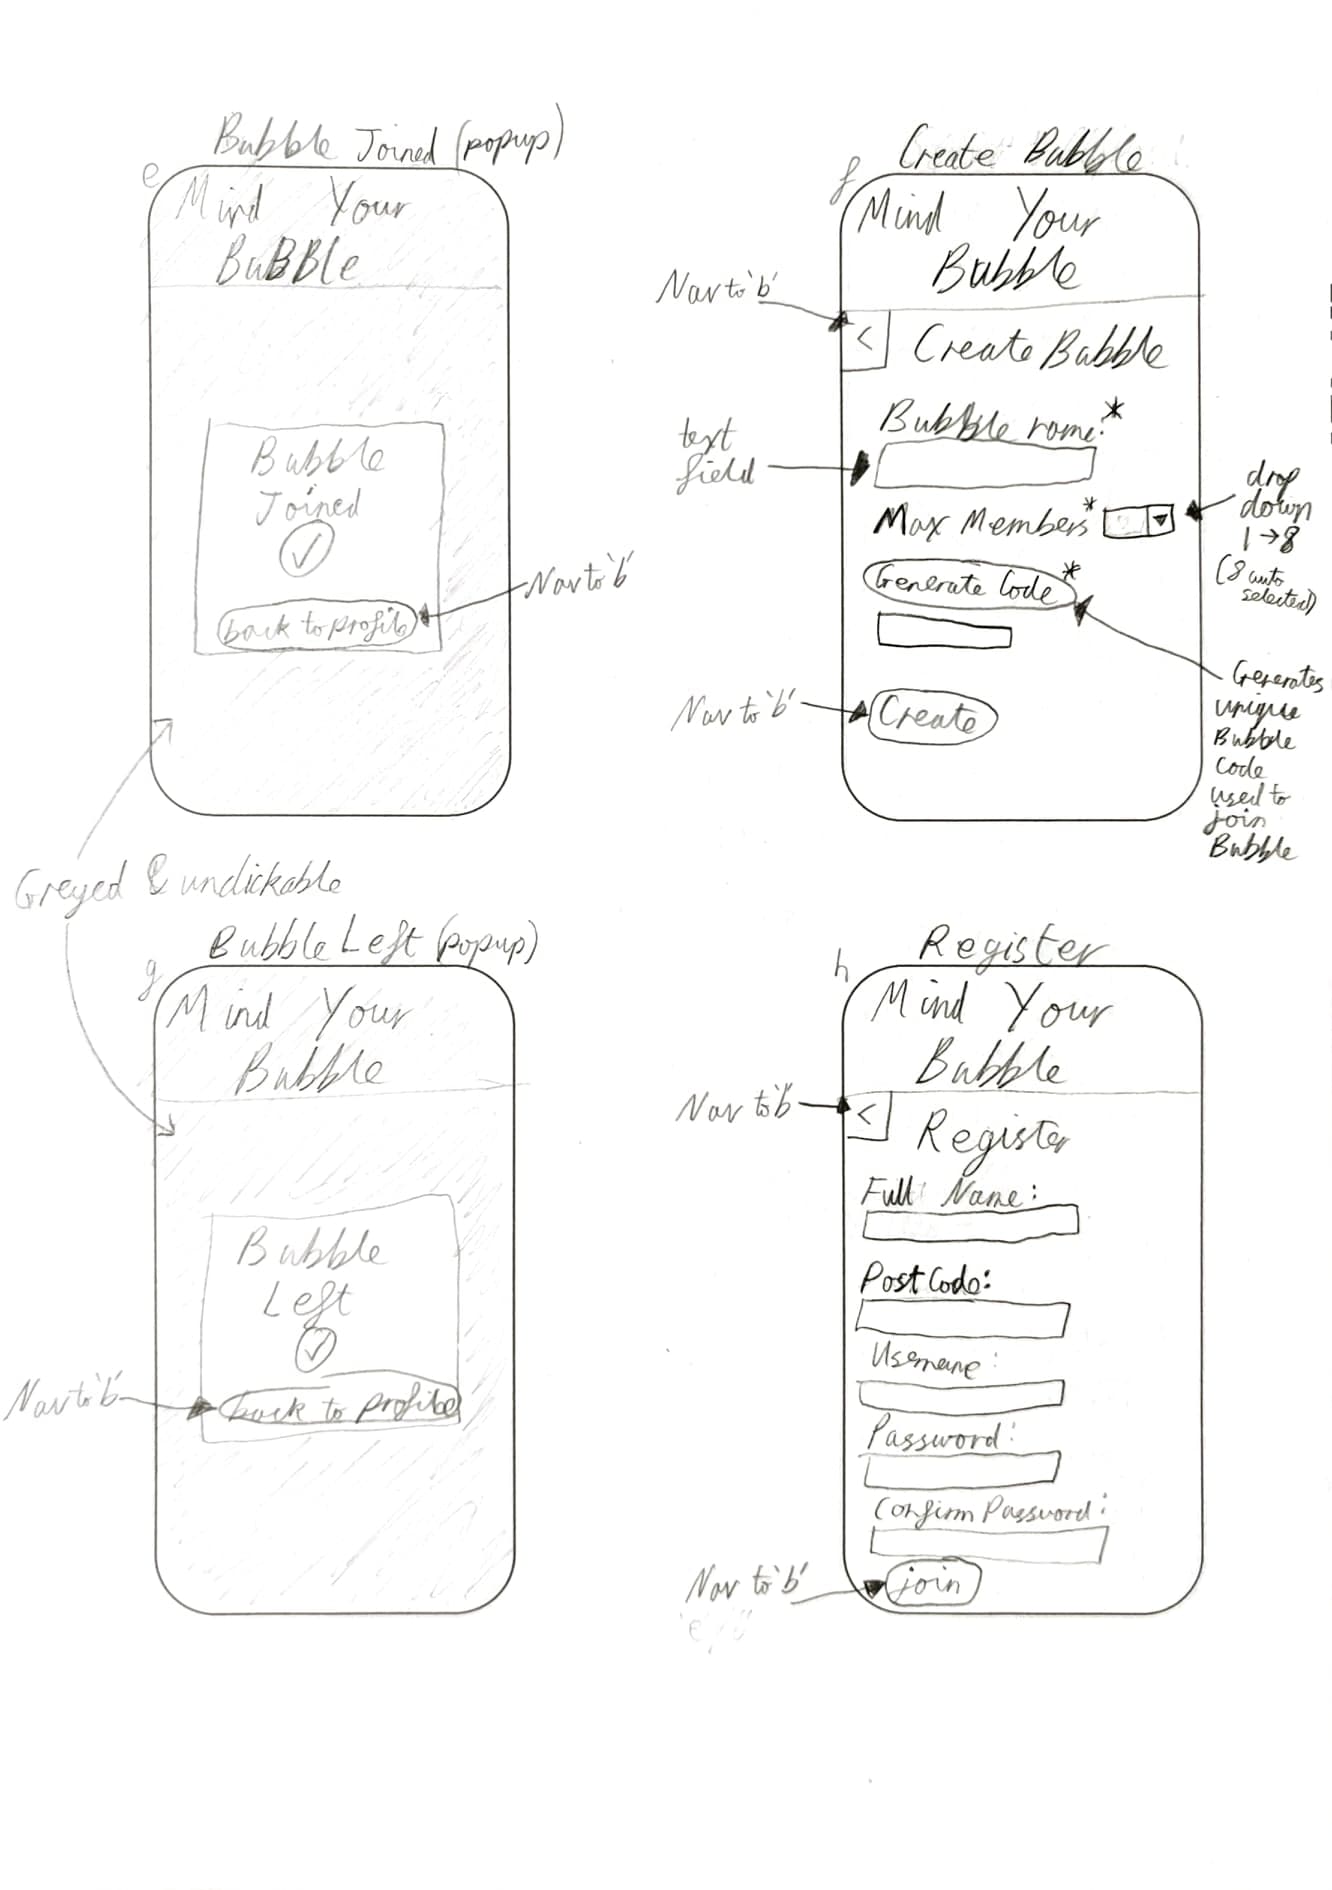 Bubble Joined (popup)
e
Mind Your
BuBBle
Bubble
Joined
back to profile
Nav to 'b'
Greyed & unclickable
f
Create Bubble
Mind Your
Bubble
Nav to 'b'
<
Create Bubble
Bubble name:*
text
field
Max Members*
drop
down
1→8
(8 auto
selected)
Generate Code*
Generates
unique
Bubble
Code
used to
join
Bubble
Nav to 'b'
Create
Bubble Left (popup)
g
Mind Your
Bubble
Bubble
Left
back to profile
Nav to 'b'
h
Register
Mind Your
Bubble
Nav to 'b'
<
Register
Full Name:
PostCode:
Username:
Password:
Confirm Password:
Nav to 'b'
join